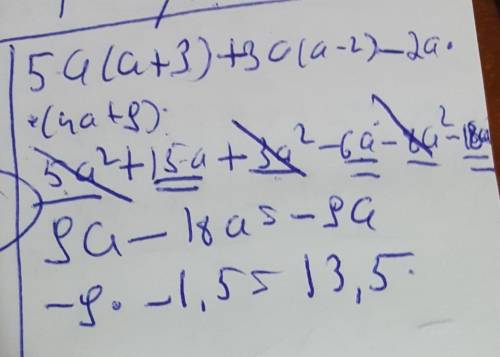 5a(a+3)+3a(a-2)-2a·
·(4a+9)·
5a²+15a+3a²-6a-8a²-18a
9a-18a=-9a
-9·-1,5=13,5·